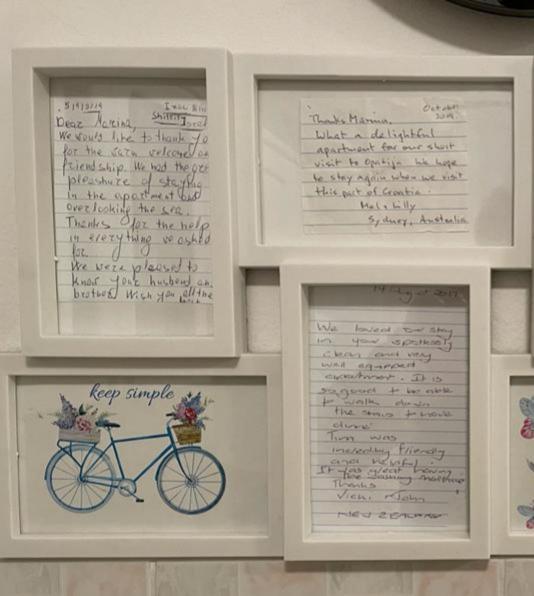 5/9/2019
Dear Marina,
We would like to thank yo
for the warm welcome an
friendship. We had the gre
pleashure of staying
in the apartment and
overlooking the sea.
Thanks for the help
in everything we asked
for.
We were pleased to
know your husband an
brother. Wish you all the
October
2019
Thanks Marina.
What a delightful
apartment for our short
visit to Opatija. We hope
to stay again when we visit
this part of Croatia.
Mel & Lilly
Sydney, Australia
keep simple
14 August 2019
We loved our stay
in your spotlessly
clean and very
well equipped
apartment. It is
so good to be able
to walk down
the stairs & have
Turn was
incredibly friendly
and helpful.
It was great having
the washing machine
Thanks
Vicki & John
NEW ZEALAND